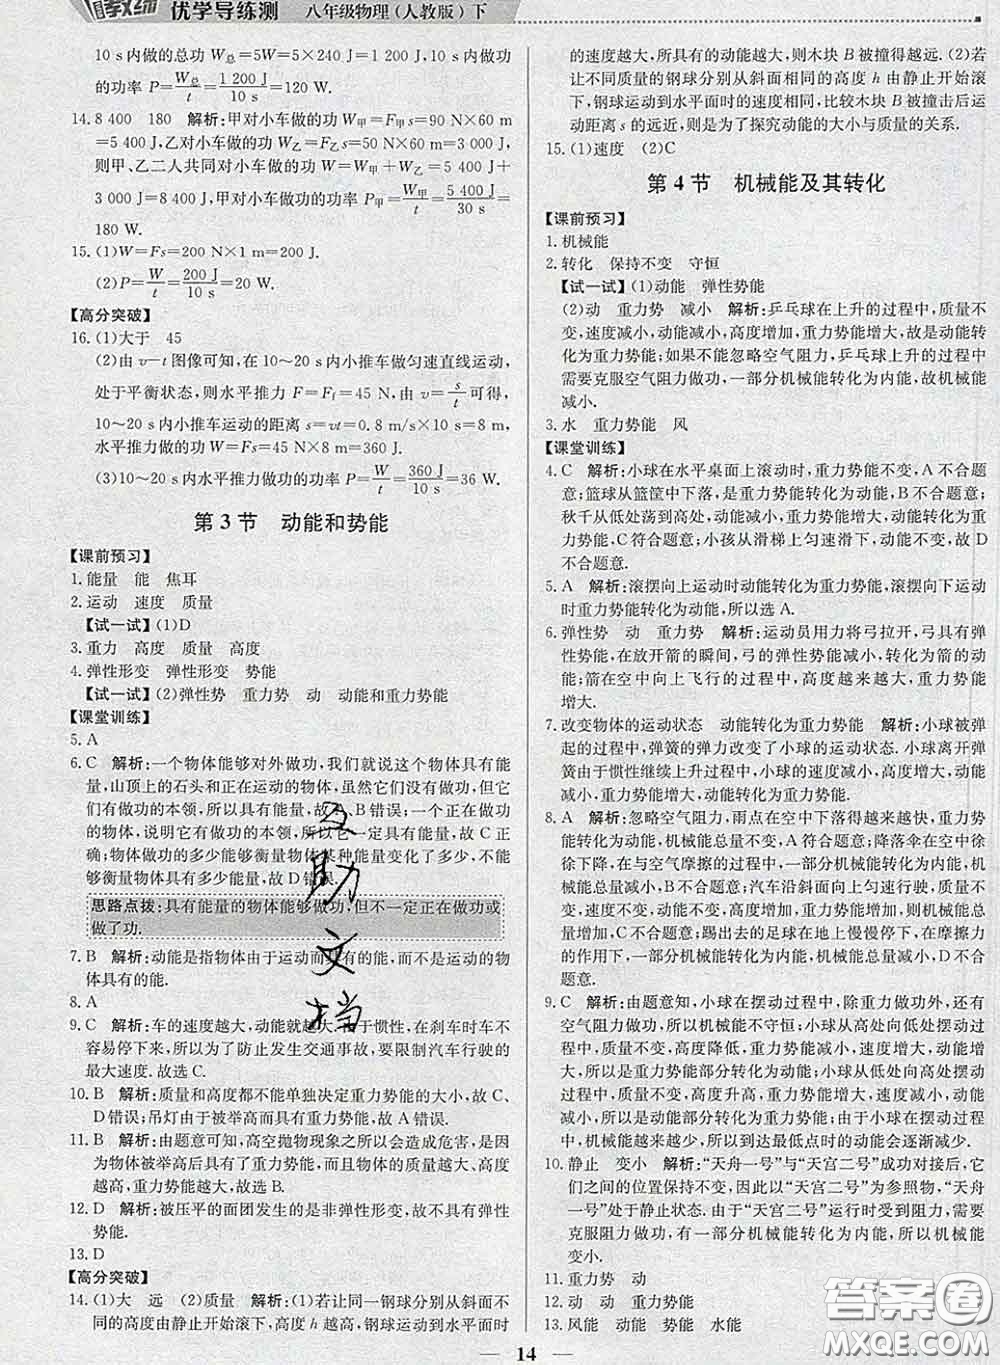 优学导练测 八年级物理(人教版)下
10 s内做的总功W总=5W=5×240 J=1 200 J,10 s内做功
的功率P=W总/t=1 200 J/10 s=120 W.
14. 8 400 180 解析:甲对小车做的功W甲=F甲s=90 N×60 m
=5 400 J,乙对小车做的功W乙=F乙s=50 N×60 m=3 000 J,
则甲、乙二人共同对小车做功W=W甲+W乙=5 400 J+
3 000 J=8 400 J,甲对小车做功的功率P甲=W甲/t=5 400 J/30 s=
180 W.
15. (1)W=Fs=200 N×1 m=200 J.
(2)P=W/t=200 J/10 s=20 W.
【高分突破】
16. (1)大于 45
(2)由v-t图像可知,在10～20 s内小推车做匀速直线运动,
处于平衡状态,则水平推力F=Ff=45 N,由v=s/t可得,
10～20 s内小推车运动的距离s=vt=0.8 m/s×10 s=8 m,
水平推力做的功W=Fs=45 N×8 m=360 J.
(3)10～20 s内水平推力做功的功率P=W/t=360 J/10 s=36 W.
第3节 动能和势能
【课前预习】
1. 能量 能 焦耳
2. 运动 速度 质量
【试一试】(1)D
3. 重力 高度 质量 高度
4. 弹性形变 弹性形变 势能
【试一试】(2)弹性势 重力势 动 动能和重力势能
【课堂训练】
5. A
6. C 解析:一个物体能够对外做功,我们就说这个物体具有能
量,山顶上的石头和正在运动的物体,虽然它们没有做功,但它
们有做功的本领,所以具有能量,故A、B错误;一个正在做功
的物体,说明它有做功的本领,所以它一定具有能量,故C正
确;物体做功的多少能够衡量物体某种能量变化了多少,不能
够衡量物体具有多少能量,故D错误.
思路点拨:具有能量的物体能够做功,但不一定正在做功或
做了功.
7. B 解析:动能是指物体由于运动而具有的能,而不是运动的物
体具有的能.
8. A
9. C 解析:车的速度越大,动能就越大.由于惯性,在刹车时车不
容易停下来,所以为了防止发生交通事故,要限制汽车行驶的
最大速度.故选C.
10. B 解析:质量和高度都不能单独决定重力势能的大小,故C、
D错误;吊灯由于被举高而具有重力势能,故A错误.
11. B 解析:由题意可知,高空抛物现象之所以会造成危害,是因
为物体被举高后具有重力势能,而且物体的质量越大、高度
越高,重力势能越大.故选B.
12. D 解析:被压平的面团发生的是非弹性形变,故不具有弹性
势能.
13. D
【高分突破】
14. (1)大 远 (2)质量 解析:(1)若让同一钢球分别从斜面不
同的高度由静止开始滚下,高度h越高,钢球运动到水平面时
的速度越大,所具有的动能越大,则木块B被撞得越远.(2)若
让不同质量的钢球分别从斜面的高度h由静止开始
滚下,钢球运动到水平面时的速度相同,比较木块B被撞击后运
动距离s的远近,则是为了探究动能的大小与质量的关系.
15. (1)速度 (2)C
第4节 机械能及其转化
【课前预习】
1. 机械能
2. 转化 保持不变 守恒
【试一试】(1)动能 弹性势能
(2)动 重力势 减小 解析:乒乓球在上升的过程中,质量不
变,速度减小,动能减小,高度增加,重力势能增大,故是动能转
化为重力势能;如果不能忽略空气阻力,乒乓球上升的过程中
需要克服空气阻力做功,一部分机械能转化为内能,故机械能
减小.
3. 水 重力势能 风
【课堂训练】
4. C 解析:小球在水平桌面上滚动时,重力势能不变,A不合题
意;篮球从篮筐中下落,是重力势能转化为动能,B不合题意;
秋千从低处荡到高处,动能减小,重力势能增大,动能转化为重
力势能,C符合题意;小孩从滑梯上匀速滑下,动能不变,故D
不合题意.
5. A 解析:滚摆向上运动时动能转化为重力势能,滚摆向下运动
时重力势能转化为动能,所以选A.
6. 弹性势 动 重力势 解析:运动员用力将弓拉开,弓具有弹
性势能,在放开箭的瞬间,弓的弹性势能减小,转化为箭的动
能;箭在空中向上飞行的过程中,高度越来越大,重力势能
增大.
7. 改变物体的运动状态 动能转化为重力势能 解析:小球被弹
起的过程中,弹簧的弹力改变了小球的运动状态.小球离开弹
簧由于惯性继续上升到最高点的过程中,速度减小、高度增大,
所以动能减小,重力势能增大,将动能转化为重力势能.
8. A 解析:忽略空气阻力,雨点在空中下落得越来越快,重力势
能转化为动能,机械能总量不变,A符合题意;降落伞在空中徐
徐下降,在与空气摩擦的过程中,一部分机械能转化为内能,机
械能总量变小,B不合题意;汽车沿斜面匀速行驶,动能不变,重
力势能变大,机械能变大,C不合题意;踢出去的足球在地上越滚越慢,在摩擦力
的作用下,一部分机械能转化为内能,机械能总量变小,D不
合题意.
9. C 解析:由题意知,小球在摆动过程中,除重力做功外,还有
空气阻力做功,所以机械能不守恒;小球从高处向低处摆动过
程中,质量不变,高度下降,重力势能减小,速度增大,动能增
大,所以是重力势能部分转化为动能;小球从低处向高处摆动
过程中,质量不变,高度升高,重力势能变大,速度减小,动能减
小,所以是动能部分转化为重力势能;由于小球从开始摆动后
高度越来越小,所以到达最低点时的动能也会逐渐减少.
10. 静止 变小 解析:“天舟一号”与“天宫二号”成功对接后,它
们之间的位置保持不变,因此以“天宫二号”为参照物,“天舟
一号”处于静止状态.由于“天宫二号”受到大气的阻力,需要
克服阻力做功,有一部分机械能转化为内能,所以机械能
变小.
11. 重力势 动
12. 动 动 重力势
13. 风能 动能 势能 水能
14
互
助
文
档
答案圈
MXQE.COM